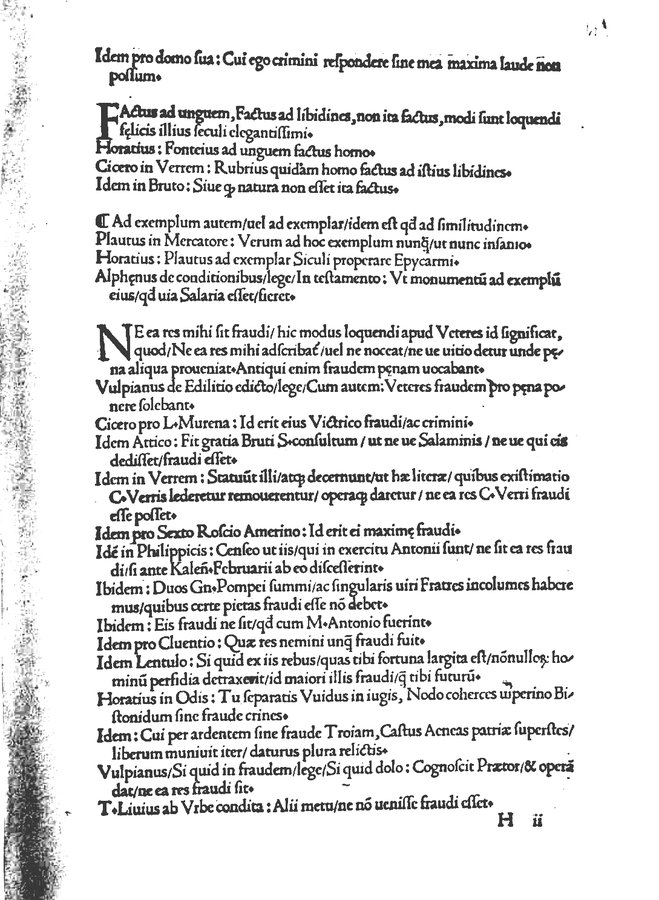 Idem pro domo ſua: Cui ego crimini reſpondere ſine mea maxima laude nõn
poſſum.
FActus ad unguem, Factus ad libidines, non ita factus, modi ſunt loquendi
fęlicis illius ſeculi elegantiſſimi.
Horatius: Fonteius ad unguem factus homo.
Cicero in Verrem: Rubrius quidàm homo factus ad iſtius libidines.
Idem in Bruto: Siue ꝙ natura non eſſet ita factus.
¶ Ad exemplum autem/uel ad exemplar/idem eſt qđ ad ſimilitudinem.
Plautus in Mercatore: Verum ad hoc exemplum nunq̃/ut nunc inſanio.
Horatius: Plautus ad exemplar Siculi properare Epycarmi.
Alphęnus de conditionibus/lege/In teſtamento: Vt monumentũ ad exemplũ
eius/qđ uia Salaria eſſet/fieret.
NE ea res mihi ſit fraudi/ hic modus loquendi apud Veteres id ſignificat,
quod/Ne ea res mihi adſcribat̃/uel ne noceat/ne ue uitio detur unde pę-
na aliqua proueniat. Antiqui enim fraudem pęnam uocabant.
Vulpianus de Edilitio edicto/lege/Cum autem: Veteres fraudem pro pęna po-
nere ſolebant.
Cicero pro L. Murena: Id erit eius Victrico fraudi/ac crimini.
Idem Attico: Fit gratia Bruti S. conſultum / ut ne ue Salaminis / ne ue qui eis
dediſſet/fraudi eſſet.
Idem in Verrem: Statuũt illi/atq; decernunt/ut hæ literæ/ quibus exiſtimatio
C. Verris lederetur remouerentur/ operaq; daretur / ne ea res C. Verri fraudi
eſſe poſſet.
Idem pro Sexto Roſcio Amerino: Id erit ei maximę fraudi.
Idẽ in Philippicis: Cenſeo ut iis/qui in exercitu Antonii ſunt/ ne ſit ea res frau
di/ſi ante Kaleñ. Februarii ab eo diſceſſerint.
Ibidem: Duos Gn. Pompei ſummi/ac ſingularis uiri Fratres incolumes habere
mus/quibus certe pietas fraudi eſſe nõ debet.
Ibidem: Eis fraudi ne ſit/qđ cum M. Antonio fuerint.
Idem pro Cluentio: Quæ res nemini unq̃ fraudi fuit.
Idem Lentulo: Si quid ex iis rebus/quas tibi fortuna largita eſt/nõnulloꝝ ho-
minũ perfidia detraxerit/id maiori illis fraudi/q̃ tibi futurũ.
Horatius in Odis: Tu ſeparatis Vuidus in iugis, Nodo coherces uiperino Bi-
ſtonidum ſine fraude crines.
Idem: Cui per ardentem ſine fraude Troiam, Caſtus Aeneas patriæ ſuperſtes/
liberum muniuit iter/ daturus plura relictis.
Vulpianus/Si quid in fraudem/lege/Si quid dolo: Cognoſcit Prætor/& operã
dat/ne ea res fraudi ſit.
T. Liuius ab Vrbe condita: Alii metu/ne nõ ueniſſe fraudi eſſet.
H ii